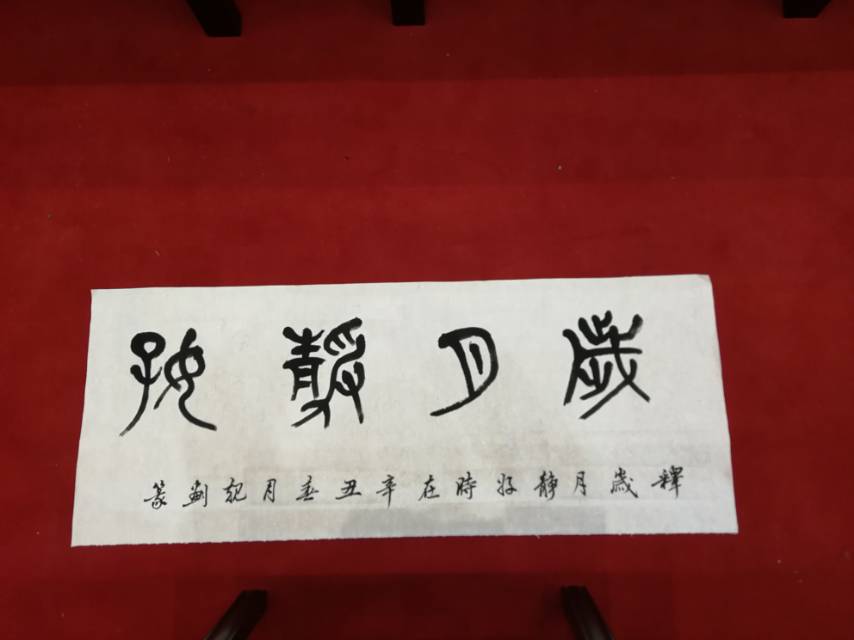 歲月靜好
釋歲月靜好時在辛丑春月記劍篆